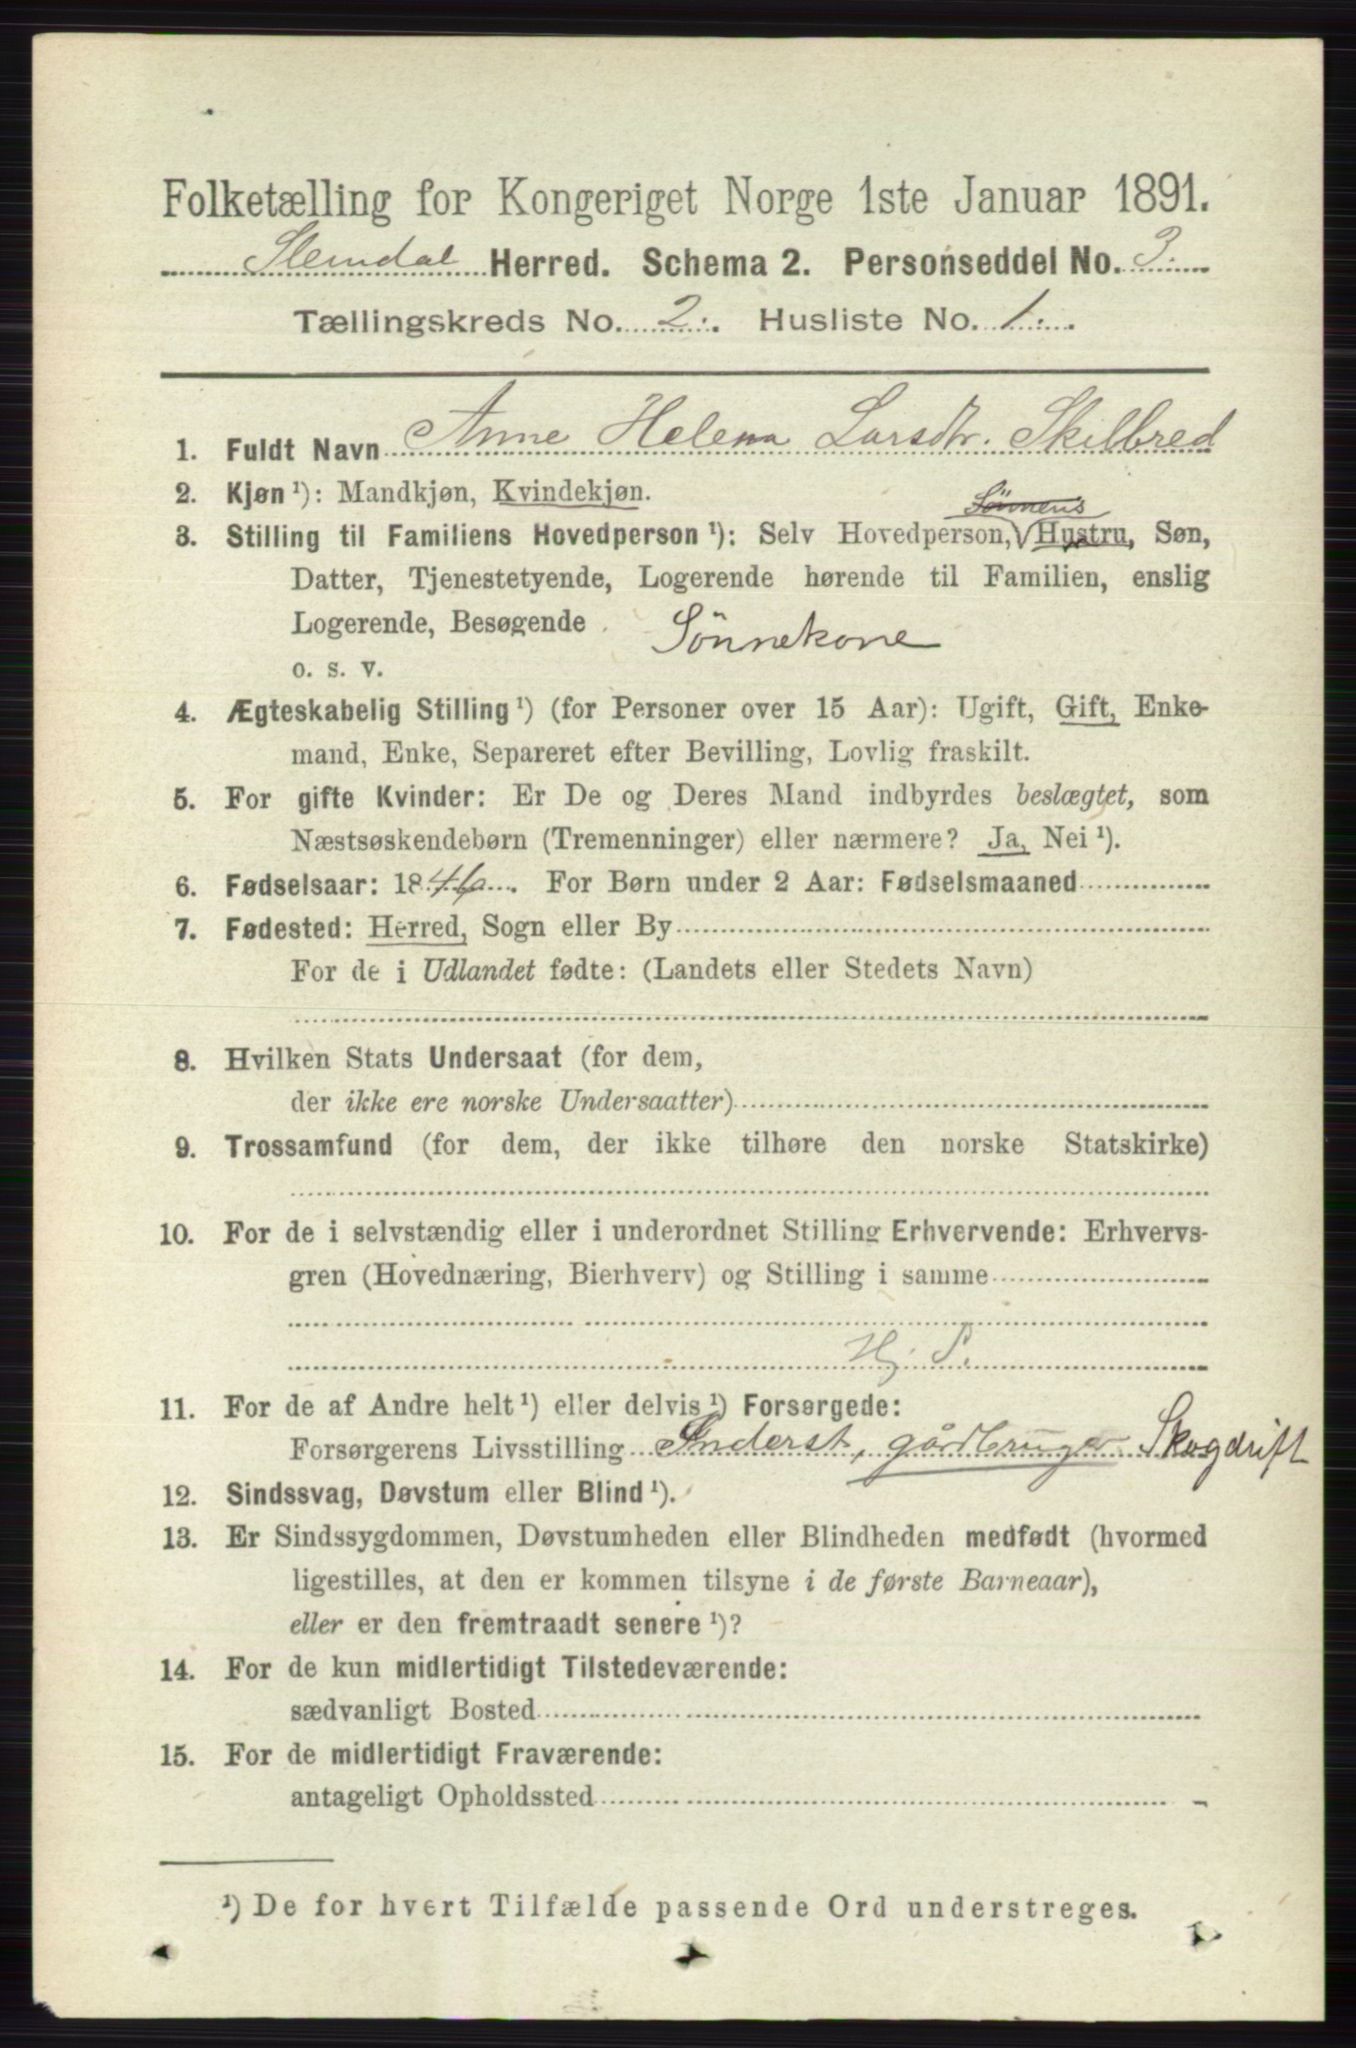 Folketælling for Kongeriget Norge 1ste Januar 1891.
Slemdal Herred. Schema 2. Personseddel No. 3.
Tællingskreds No. 2. Husliste No. 1.
1. Fuldt Navn Anne Helena Larsdtr. Skilbred
2. Kjøn ¹): Mandkjøn, Kvindekjøn.
Sönnens
3. Stilling til Familiens Hovedperson ¹): Selv Hovedperson, Hustru, Søn,
Datter, Tjenestetyende, Logerende hørende til Familien, enslig
Logerende, Besøgende Sönnekone
o. s. v.
4. Ægteskabelig Stilling ¹) (for Personer over 15 Aar): Ugift, Gift, Enke-
mand, Enke, Separeret efter Bevilling, Lovlig fraskilt.
5. For gifte Kvinder: Er De og Deres Mand indbyrdes beslægtet, som
Næstsøskendebørn (Tremenninger) eller nærmere? Ja, Nei ¹).
6. Fødselsaar: 1846. For Børn under 2 Aar: Fødselsmaaned
7. Fødested: Herred, Sogn eller By
For de i Udlandet fødte: (Landets eller Stedets Navn)
8. Hvilken Stats Undersaat (for dem,
der ikke ere norske Undersaatter)
9. Trossamfund (for dem, der ikke tilhøre den norske Statskirke)
10. For de i selvstændig eller i underordnet Stilling Erhvervende: Erhvervs-
gren (Hovednæring, Bierhverv) og Stilling i samme
H. S.
11. For de af Andre helt ¹) eller delvis ¹) Forsørgede:
Forsørgerens Livsstilling Inderst, gårdbruger Skogdrift
12. Sindssvag, Døvstum eller Blind ¹).
13. Er Sindssygdommen, Døvstumheden eller Blindheden medfødt (hvormed
ligestilles, at den er kommen tilsyne i de første Barneaar),
eller er den fremtraadt senere ¹)?
14. For de kun midlertidigt Tilstedeværende:
sædvanligt Bosted
15. For de midlertidigt Fraværende:
antageligt Opholdssted
¹) De for hvert Tilfælde passende Ord understreges.